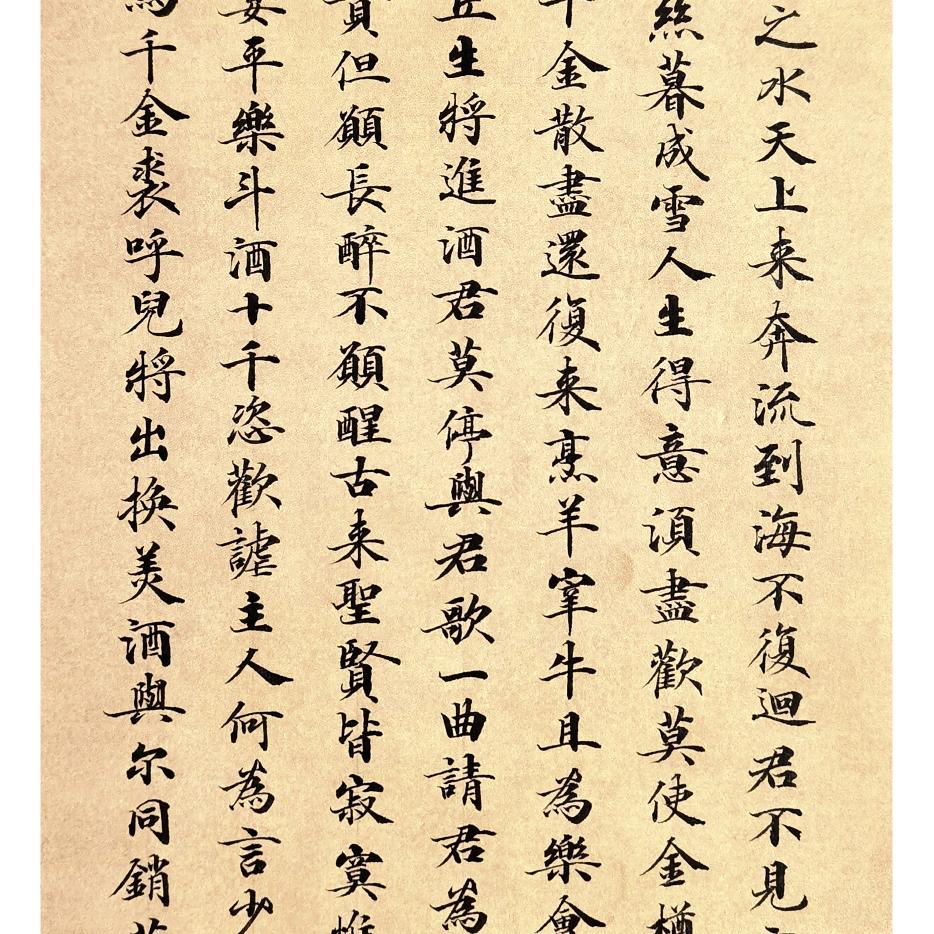 之水天上来奔流到海不復迴君不見
絲暮成雪人生得意須盡歡莫使金樽
千金散盡還復来烹羊宰牛且為樂會
丘生將進酒君莫停與君歌一曲請君為
貴但願長醉不願醒古来聖賢皆寂寞惟
宴平樂斗酒十千恣歡謔主人何為言少
馬千金裘呼兒將出換美酒與尔同銷萬